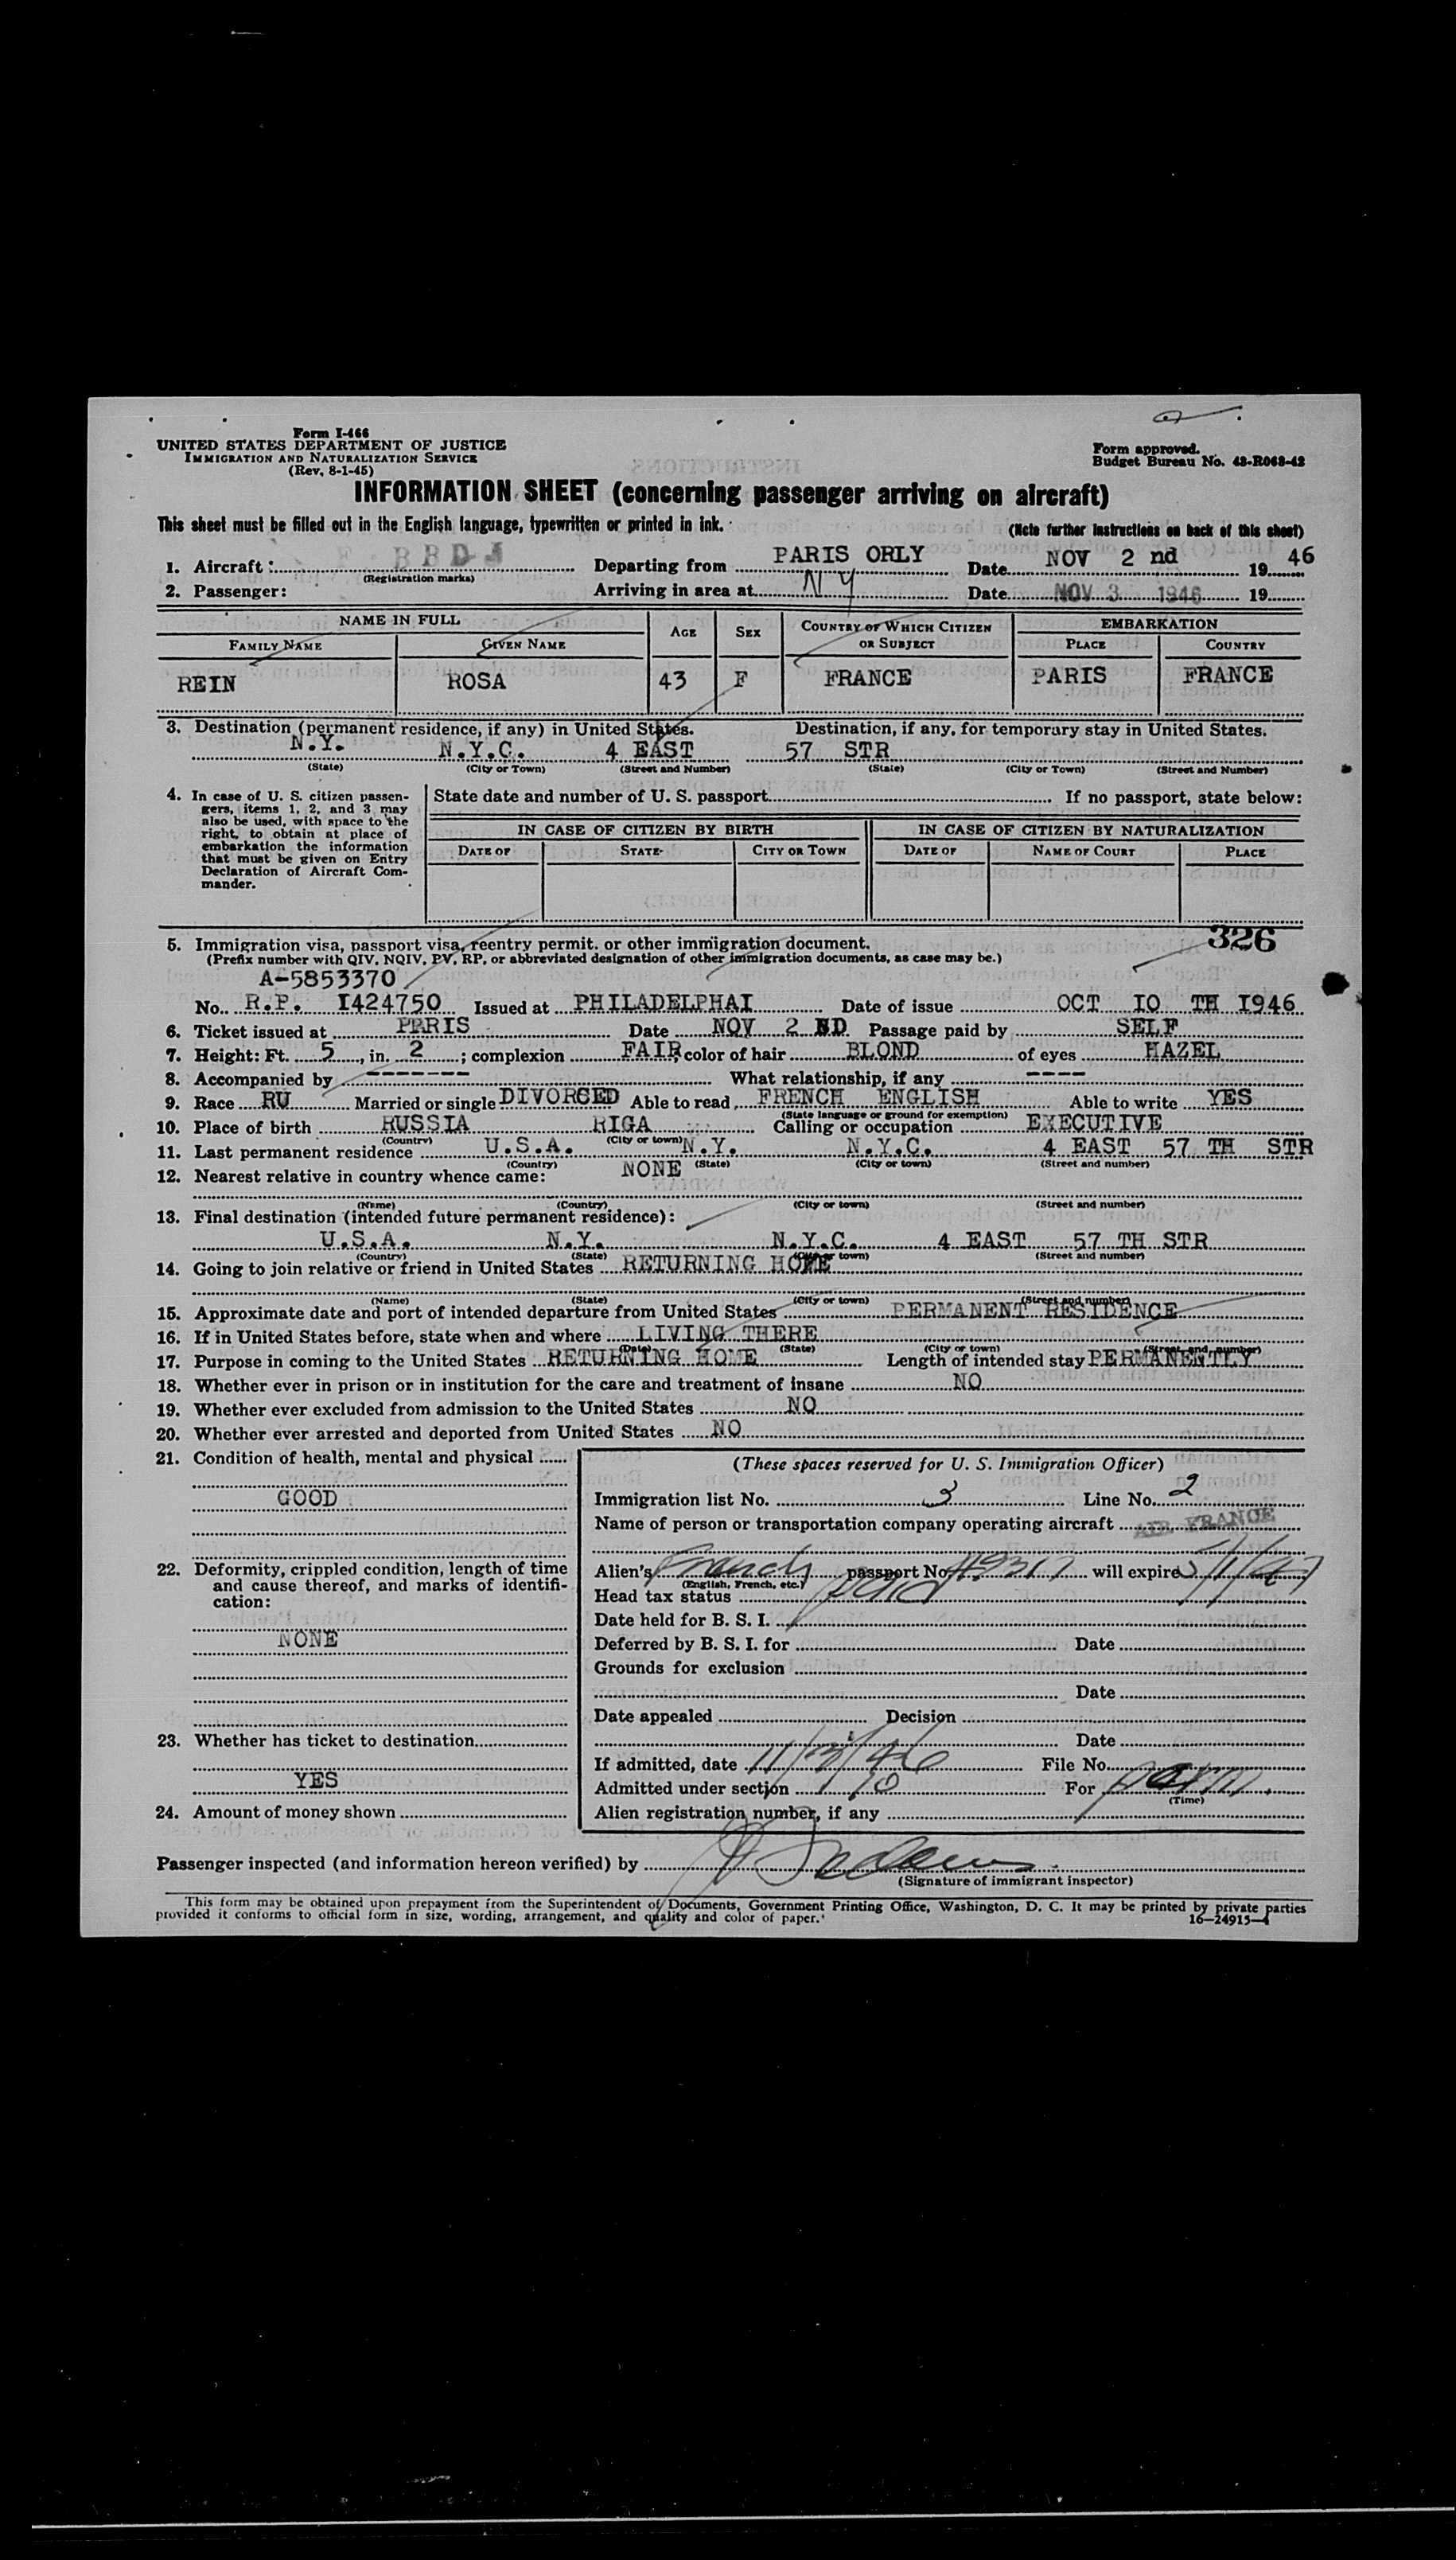 Form I-466
UNITED STATES DEPARTMENT OF JUSTICE
IMMIGRATION AND NATURALIZATION SERVICE
(Rev. 8-1-45)
Form approved.
Budget Bureau No. 43-R063-42
INFORMATION SHEET (concerning passenger arriving on aircraft)
This sheet must be filled out in the English language, typewritten or printed in ink.
(Note further instructions on back of this sheet)
1. Aircraft: F-BBDJ Departing from PARIS ORLY Date NOV 2 nd 1946
(Registration marks)
2. Passenger: Arriving in area at NY Date NOV 3 1946 19
NAME IN FULL AGE SEX COUNTRY OF WHICH CITIZEN OR SUBJECT EMBARKATION
FAMILY NAME GIVEN NAME PLACE COUNTRY
REIN ROSA 43 F FRANCE PARIS FRANCE
3. Destination (permanent residence, if any) in United States. Destination, if any, for temporary stay in United States.
N.Y. N.Y.C. 4 EAST 57 STR
(State) (City or Town) (Street and Number) (State) (City or Town) (Street and Number)
4. In case of U. S. citizen passengers, items 1, 2, and 3 may also be used, with space to the right, to obtain at place of embarkation the information that must be given on Entry Declaration of Aircraft Commander.
State date and number of U. S. passport If no passport, state below:
IN CASE OF CITIZEN BY BIRTH IN CASE OF CITIZEN BY NATURALIZATION
DATE OF STATE CITY OR TOWN DATE OF NAME OF COURT PLACE
326
5. Immigration visa, passport visa, reentry permit. or other immigration document.
(Prefix number with QIV, NQIV, PV, RP, or abbreviated designation of other immigration documents, as case may be.)
A-5853370
No. R.P. I424750 Issued at PHILADELPHAI Date of issue OCT IO TH I946
6. Ticket issued at PARIS Date NOV 2 ND Passage paid by SELF
7. Height: Ft. 5, in. 2; complexion FAIR, color of hair BLOND of eyes HAZEL
8. Accompanied by ------- What relationship, if any ----
9. Race RU Married or single DIVORCED Able to read FRENCH ENGLISH Able to write YES
(State language or ground for exemption)
10. Place of birth RUSSIA RIGA Calling or occupation EXECUTIVE
(Country) (City or town)
11. Last permanent residence U.S.A. N.Y. N.Y.C. 4 EAST 57 TH STR
(Country) (State) (City or town) (Street and number)
12. Nearest relative in country whence came: NONE
(Name) (Country) (City or town) (Street and number)
13. Final destination (intended future permanent residence):
U.S.A. N.Y. N.Y.C. 4 EAST 57 TH STR
(Country) (State) (City or town) (Street and number)
14. Going to join relative or friend in United States RETURNING HOME
(Name) (State) (City or town) (Street and number)
15. Approximate date and port of intended departure from United States PERMANENT RESIDENCE
16. If in United States before, state when and where LIVING THERE
(Date) (State) (City or town) (Street and number)
17. Purpose in coming to the United States RETURNING HOME Length of intended stay PERMANENTLY
18. Whether ever in prison or in institution for the care and treatment of insane NO
19. Whether ever excluded from admission to the United States NO
20. Whether ever arrested and deported from United States NO
21. Condition of health, mental and physical
GOOD
22. Deformity, crippled condition, length of time and cause thereof, and marks of identification:
NONE
23. Whether has ticket to destination
YES
24. Amount of money shown
(These spaces reserved for U. S. Immigration Officer)
Immigration list No. 3 Line No. 2
Name of person or transportation company operating aircraft AIR FRANCE
Alien's French passport No. will expire
(English, French, etc.)
Head tax status paid
Date held for B. S. I.
Deferred by B. S. I. for Date
Grounds for exclusion
Date
Date appealed Decision
Date
If admitted, date 11/3/46 File No.
Admitted under section For perm.
(Time)
Alien registration number, if any
Passenger inspected (and information hereon verified) by
(Signature of immigrant inspector)
This form may be obtained upon prepayment from the Superintendent of Documents, Government Printing Office, Washington, D. C. It may be printed by private parties
provided it conforms to official form in size, wording, arrangement, and quality and color of paper.
16—24915-4